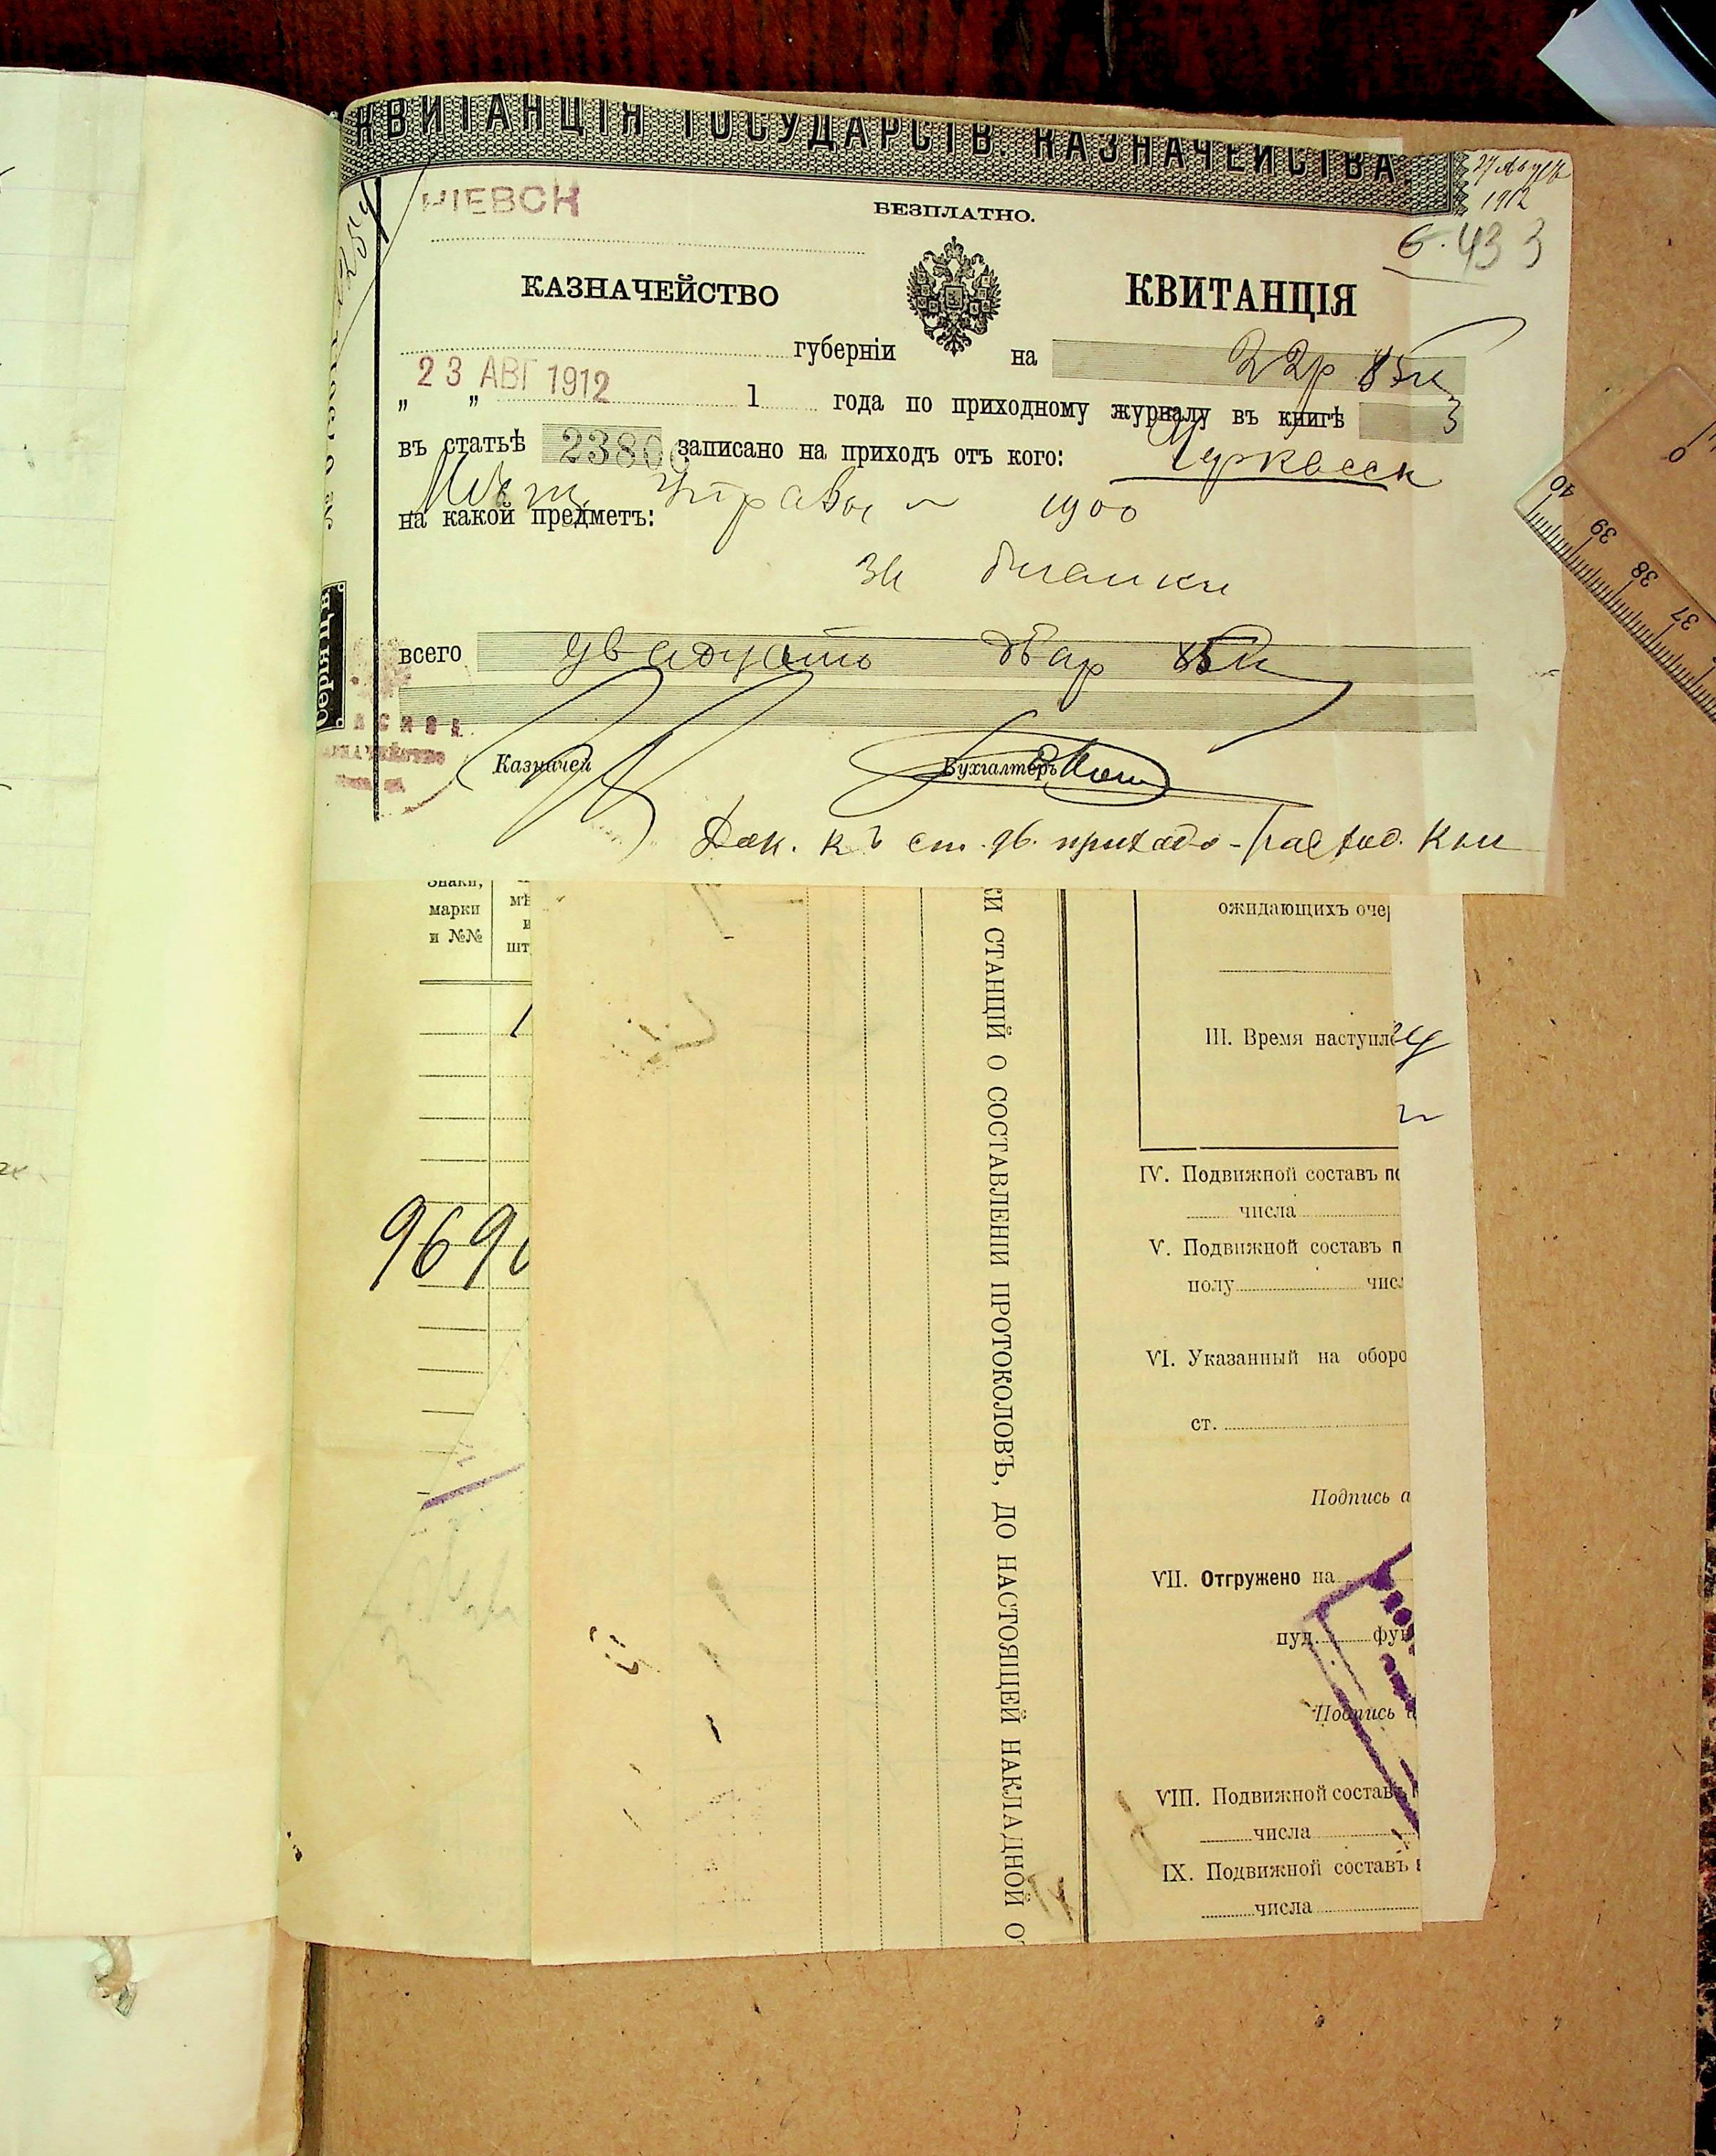 КВИТАНЦІЯ ГОСУДАРСТВ. КАЗНАЧЕЙСТВА.
27 Авгус
1912
КІЕВСК
БЕЗПЛАТНО.
433
КАЗНАЧЕЙСТВО
КВИТАНЦІЯ
губерніи
на 22р 85к
23 АВГ 1912
„ „ 1 года по приходному журналу въ книгѣ 3
въ статьѣ 2380 записано на приходъ отъ кого: Черкасск
Мѣщ. Управы 1900
на какой предметъ:
за бланки
Серія Ц.В.
всего двадцать два р 85к
Казначей
Бухгалтеръ
Док. къ ст. приходо-расход. кни
знаки,
марки
и №№
мѣ
шт
969
КИ СТАНЦІЙ О СОСТАВЛЕНІИ ПРОТОКОЛОВЪ, ДО НАСТОЯЩЕЙ НАКЛАДНОЙ О
ожидающихъ очер
III. Время наступле
IV. Подвижной составъ по
числа
V. Подвижной составъ п
полу числ
VI. Указанный на оборо
ст.
Подпись а
VII. Отгружено на
пуд. фун
Подпись а
VIII. Подвижной составъ
числа
IX. Подвижной составъ
числа
40
39
38
37
0